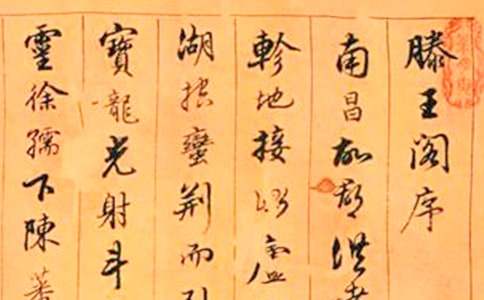 滕王阁序
南昌故郡洪都
軫地接衡廬
湖控蠻荆而引
寶龍光射斗
靈徐孺下陳蕃